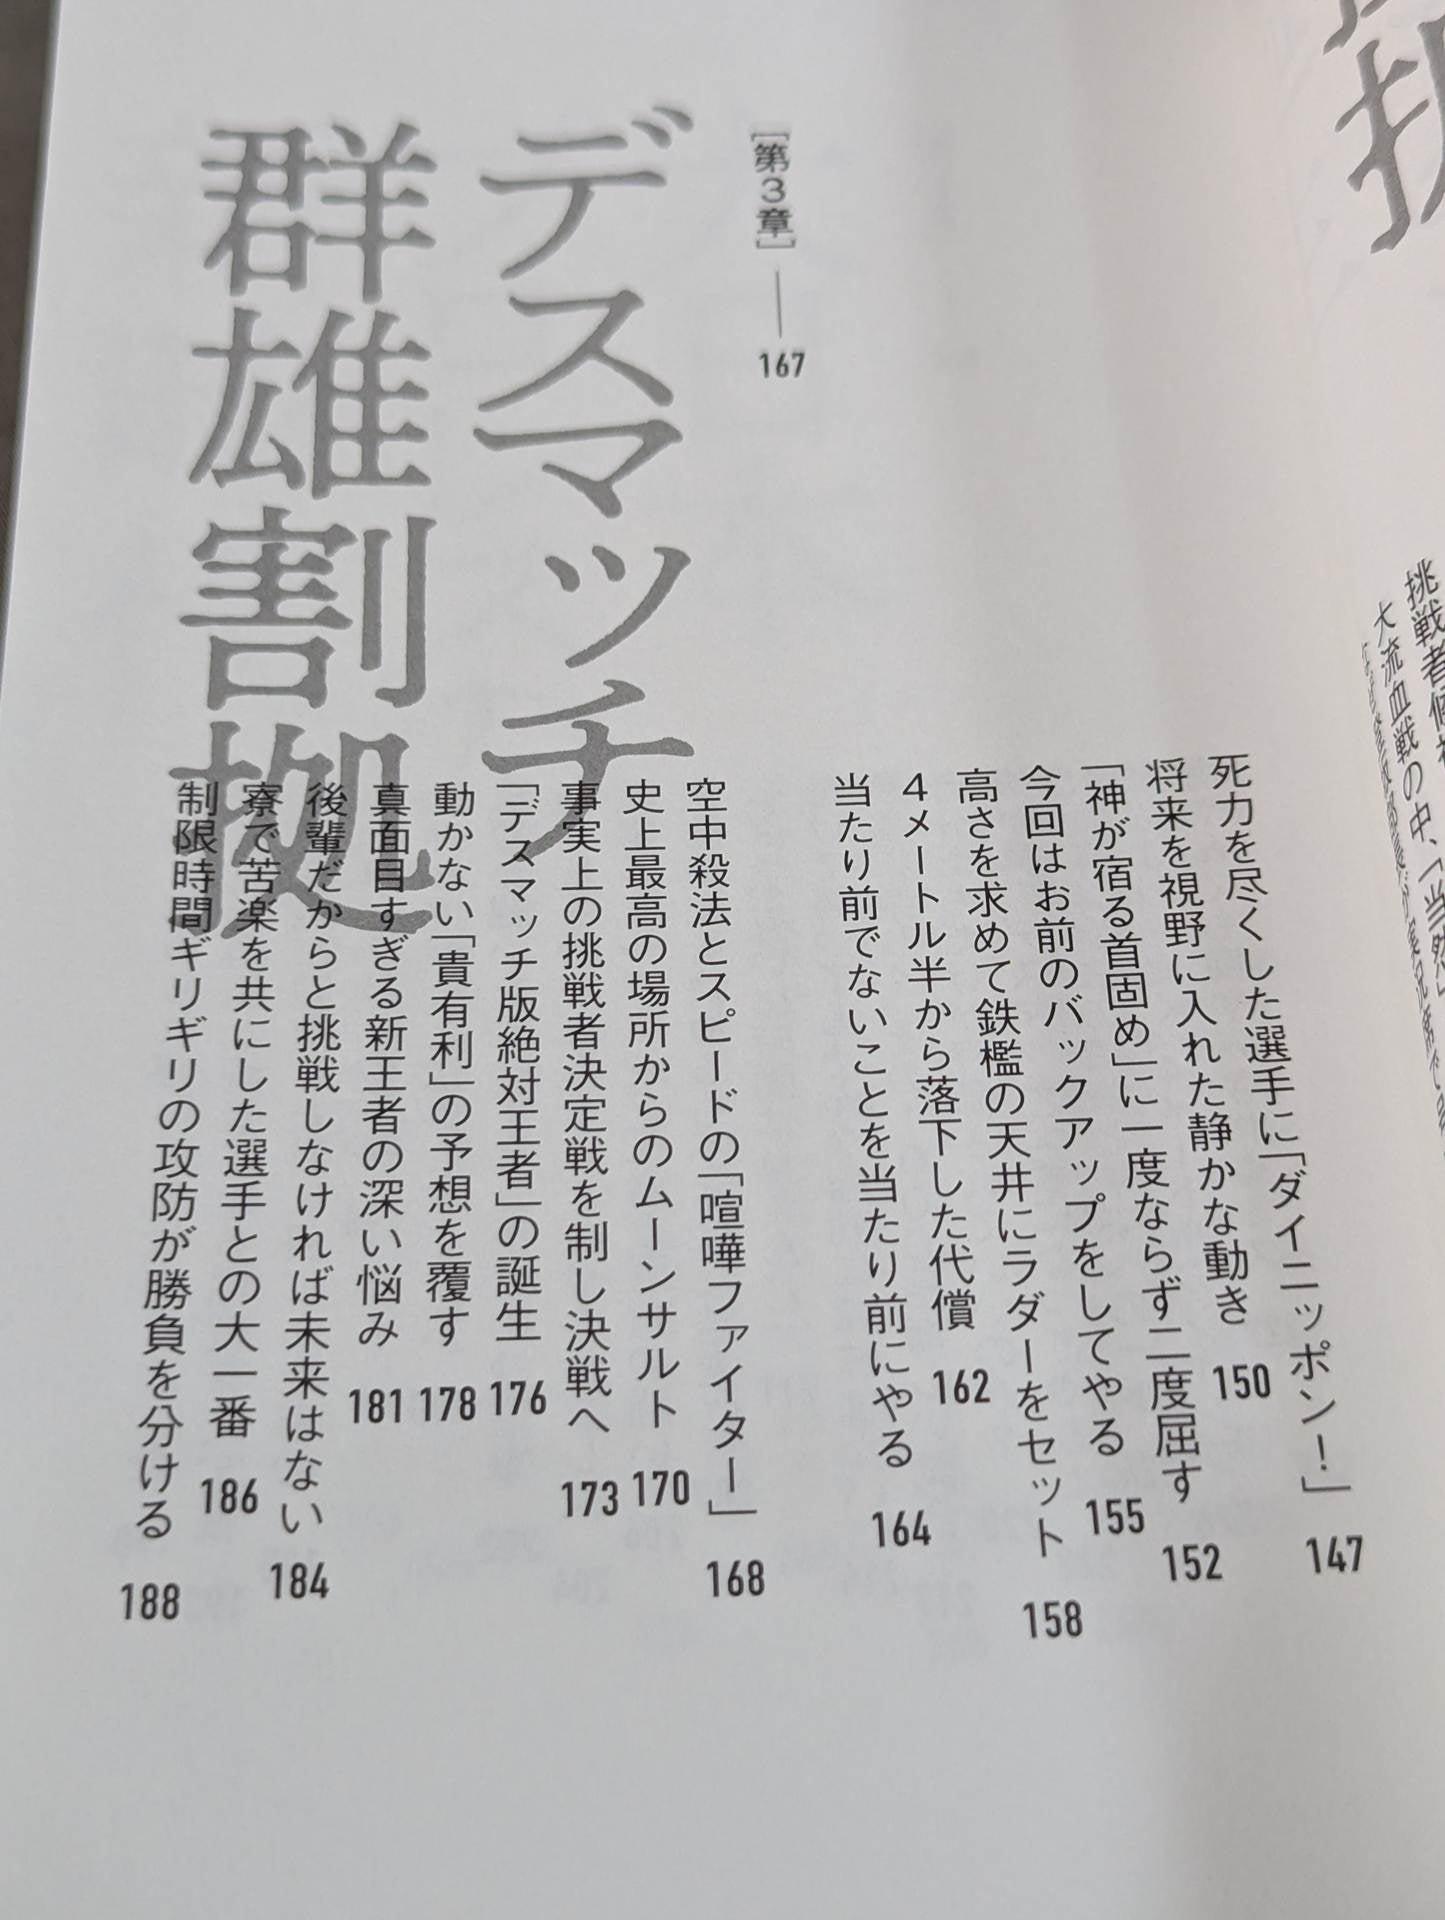 挑戦者候補
大流血戦の中、「当然」
死力を尽くした選手に「ダイニッポン！」 147
将来を視野に入れた静かな動き 150
「神が宿る首固め」に一度ならず二度屈す 152
今回はお前のバックアップをしてやる 155
高さを求めて鉄檻の天井にラダーをセット 158
4メートル半から落下した代償 162
当たり前でないことを当たり前にやる 164
［第3章］—— 167
デスマッチ
群雄割拠
空中殺法とスピードの「喧嘩ファイター」 168
史上最高の場所からのムーンサルト 170
事実上の挑戦者決定戦を制し決戦へ 173
「デスマッチ版絶対王者」の誕生 176
動かない「貴有利」の予想を覆す 178
真面目すぎる新王者の深い悩み 181
後輩だからと挑戦しなければ未来はない 184
寮で苦楽を共にした選手との大一番 186
制限時間ギリギリの攻防が勝負を分ける 188